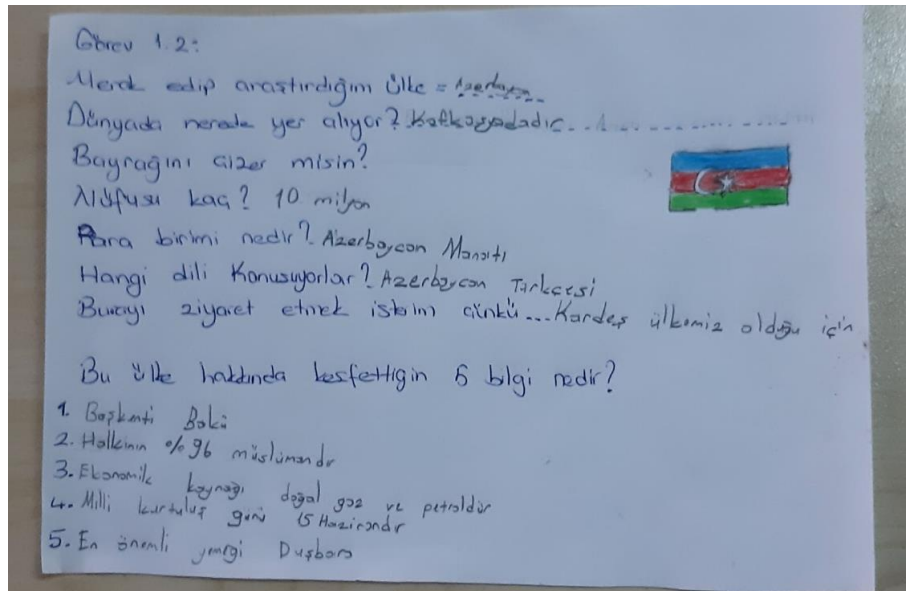 Görev 1.2:
Merak edip araştırdığım ülke = Azerbaycan
Dünyada nerede yer alıyor? Kafkasyadadır
Bayrağını çizer misin?
Nüfusu kaç? 10 milyon
Para birimi nedir? Azerbaycan Manatı
Hangi dili Konuşuyorlar? Azerbaycan Türkçesi
Burayı ziyaret etmek isterim çünkü...Kardeş ülkemiz olduğu için
Bu ülke hakkında keşfettiğin 5 bilgi nedir?
1. Başkenti Bakü
2. Halkının %96 müslümandır
3. Ekonomik kaynağı doğal gaz ve petroldür
4. Milli kurtuluş günü 15 Hazirandır
5. En önemli yemeği Duşbara